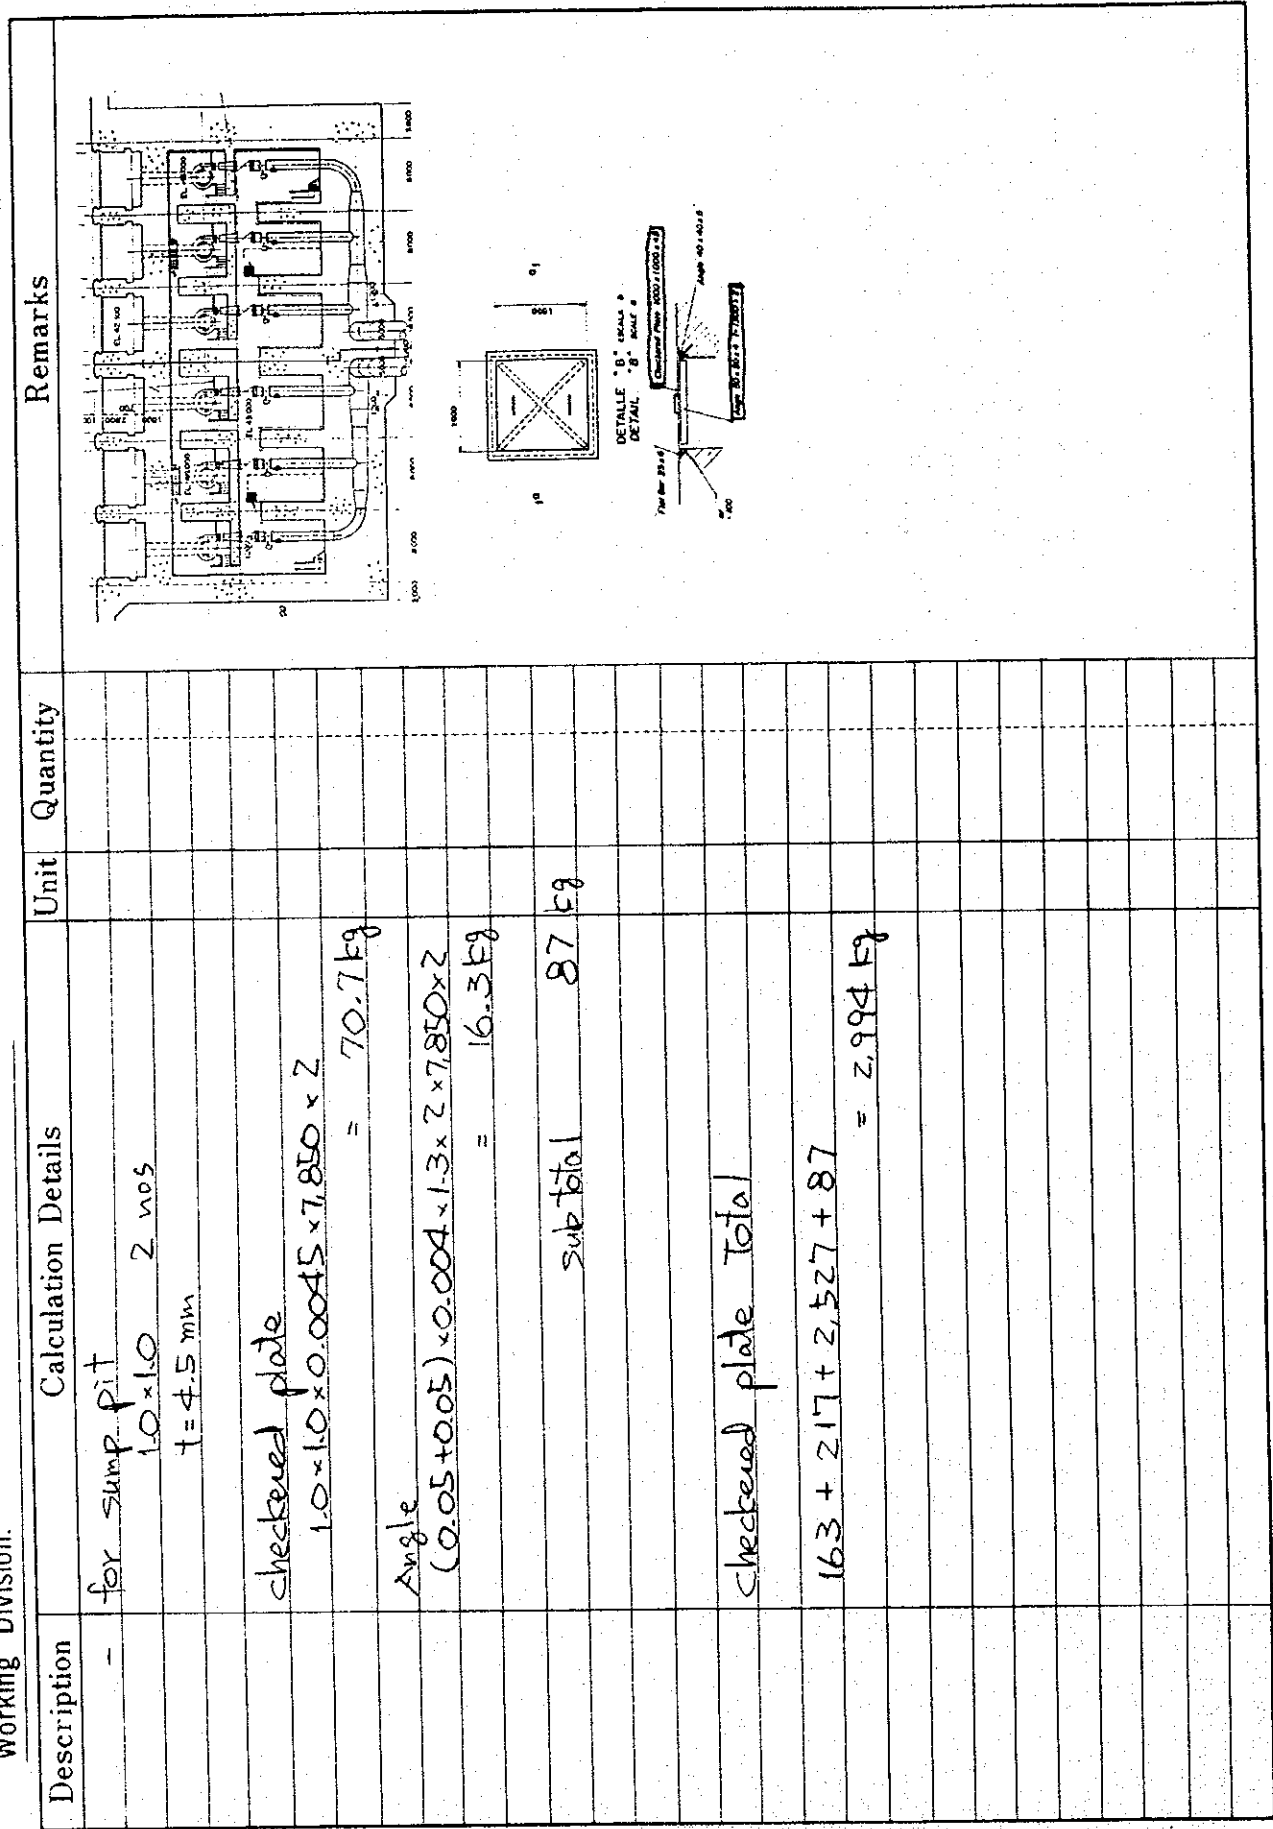 Working Division.
Description Calculation Details Unit Quantity Remarks
- for sump pit
1.0×1.0 2 nos
t=4.5 mm
checkered plate
1.0×1.0×0.0045×7,850×2
= 70.7 kg
Angle
(0.05+0.05)×0.004×1.3×2×7,850×2
= 16.3 kg
sub total 87 kg
checkered plate Total
163 + 217 + 2,527 + 87
= 2,994 kg
EL 42 50
EL 49 000
1000
1000
DETALLE "B" ESCALA
DETAIL "B" SCALE
Checkered Plate 1000 x 1000 x 4.5
Angle 40 x 40 x 5
Flat Bar